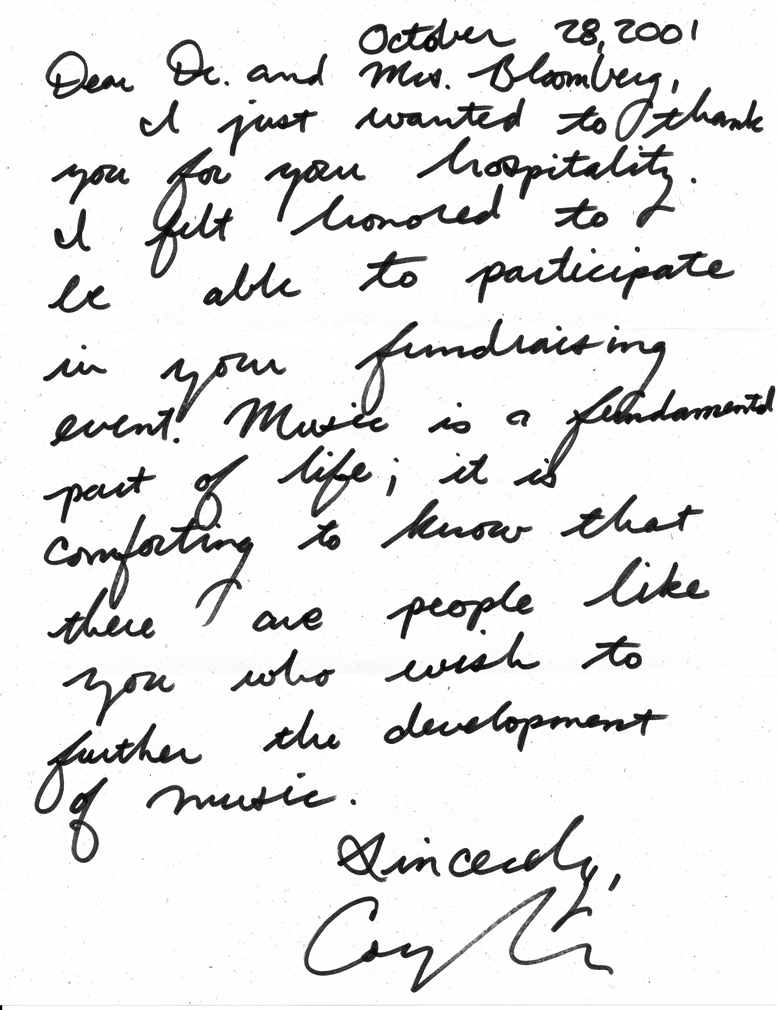 October 28, 2001
Dear Dr. and Mrs. Bloomberg,
I just wanted to thank
you for your hospitality.
I felt honored to
be able to participate
in your fundraising
event. Music is a fundamental
part of life; it is
comforting to know that
there are people like
you who wish to
further the development
of music.
Sincerely,